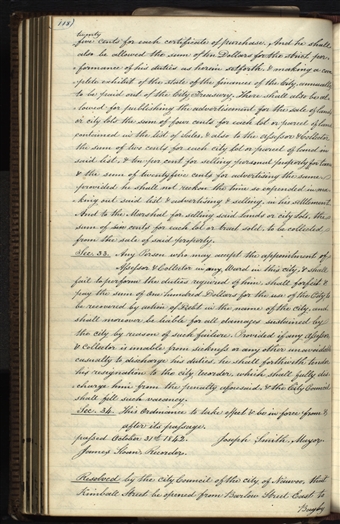 118)
twenty
five cents for each certificate of purchase. And he shall
also be allowed the sum of ten Dollars for the strict per-
formance of his duties as herein set forth. & making a com-
plete exhibit of the state of the finances of the City, annually
to be paid out of the City Treasury. There shall also be al-
lowed for publishing the advertisement for the sale of lands
or city lots the sum of four cents for each lot or parcel of land
contained in the list of sales, & also to the Assessor & Collector
the sum of two cents for each city lot or parcel of land in
said list, & ten per cent for selling personal property for taxes
& the sum of twenty five cents for advertising the same
provided he shall not reckon the time so expended in ma-
king out said list & advertising & selling, in his settlement
And to the Marshal for selling said lands or city lots, the
sum of six cents for each lot or tract sold, to be collected
from the sale of said property.
Sec. 33. Any Person who may accept the appointment of
Assessor & Collector in any Ward in this city, & shall
fail to perform the duties required of him, shall forfeit &
pay the sum of one hundred Dollars for the use of the City to
be recovered by action of Debt in the name of the city, and
shall moreover be liable for all damages sustained by
the city by reason of such failure. Provided if any Assessor
& Collector is unable from sickness or any other unavoidable
casualty to discharge his duties, he shall forthwith tender
his resignation to the city recorder, which shall fully dis-
charge him from the penalty aforesaid, & the City Council
shall fill such vacancy.
Sec. 34. This Ordinance to take effect & be in force from &
after its passage.
passed October 31st 1842. Joseph Smith, Mayor
James Sloan Recorder.
Resolved by the city Council of the city of Nauvoo, that
Kimball Street be opened from Barlow Street East to
Bagby